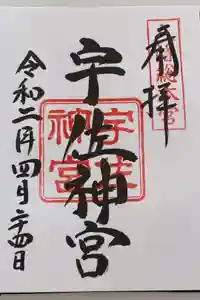 奉拝
八幡総本宮
宇佐神宮
宇佐神宮
令和二年四月二十四日